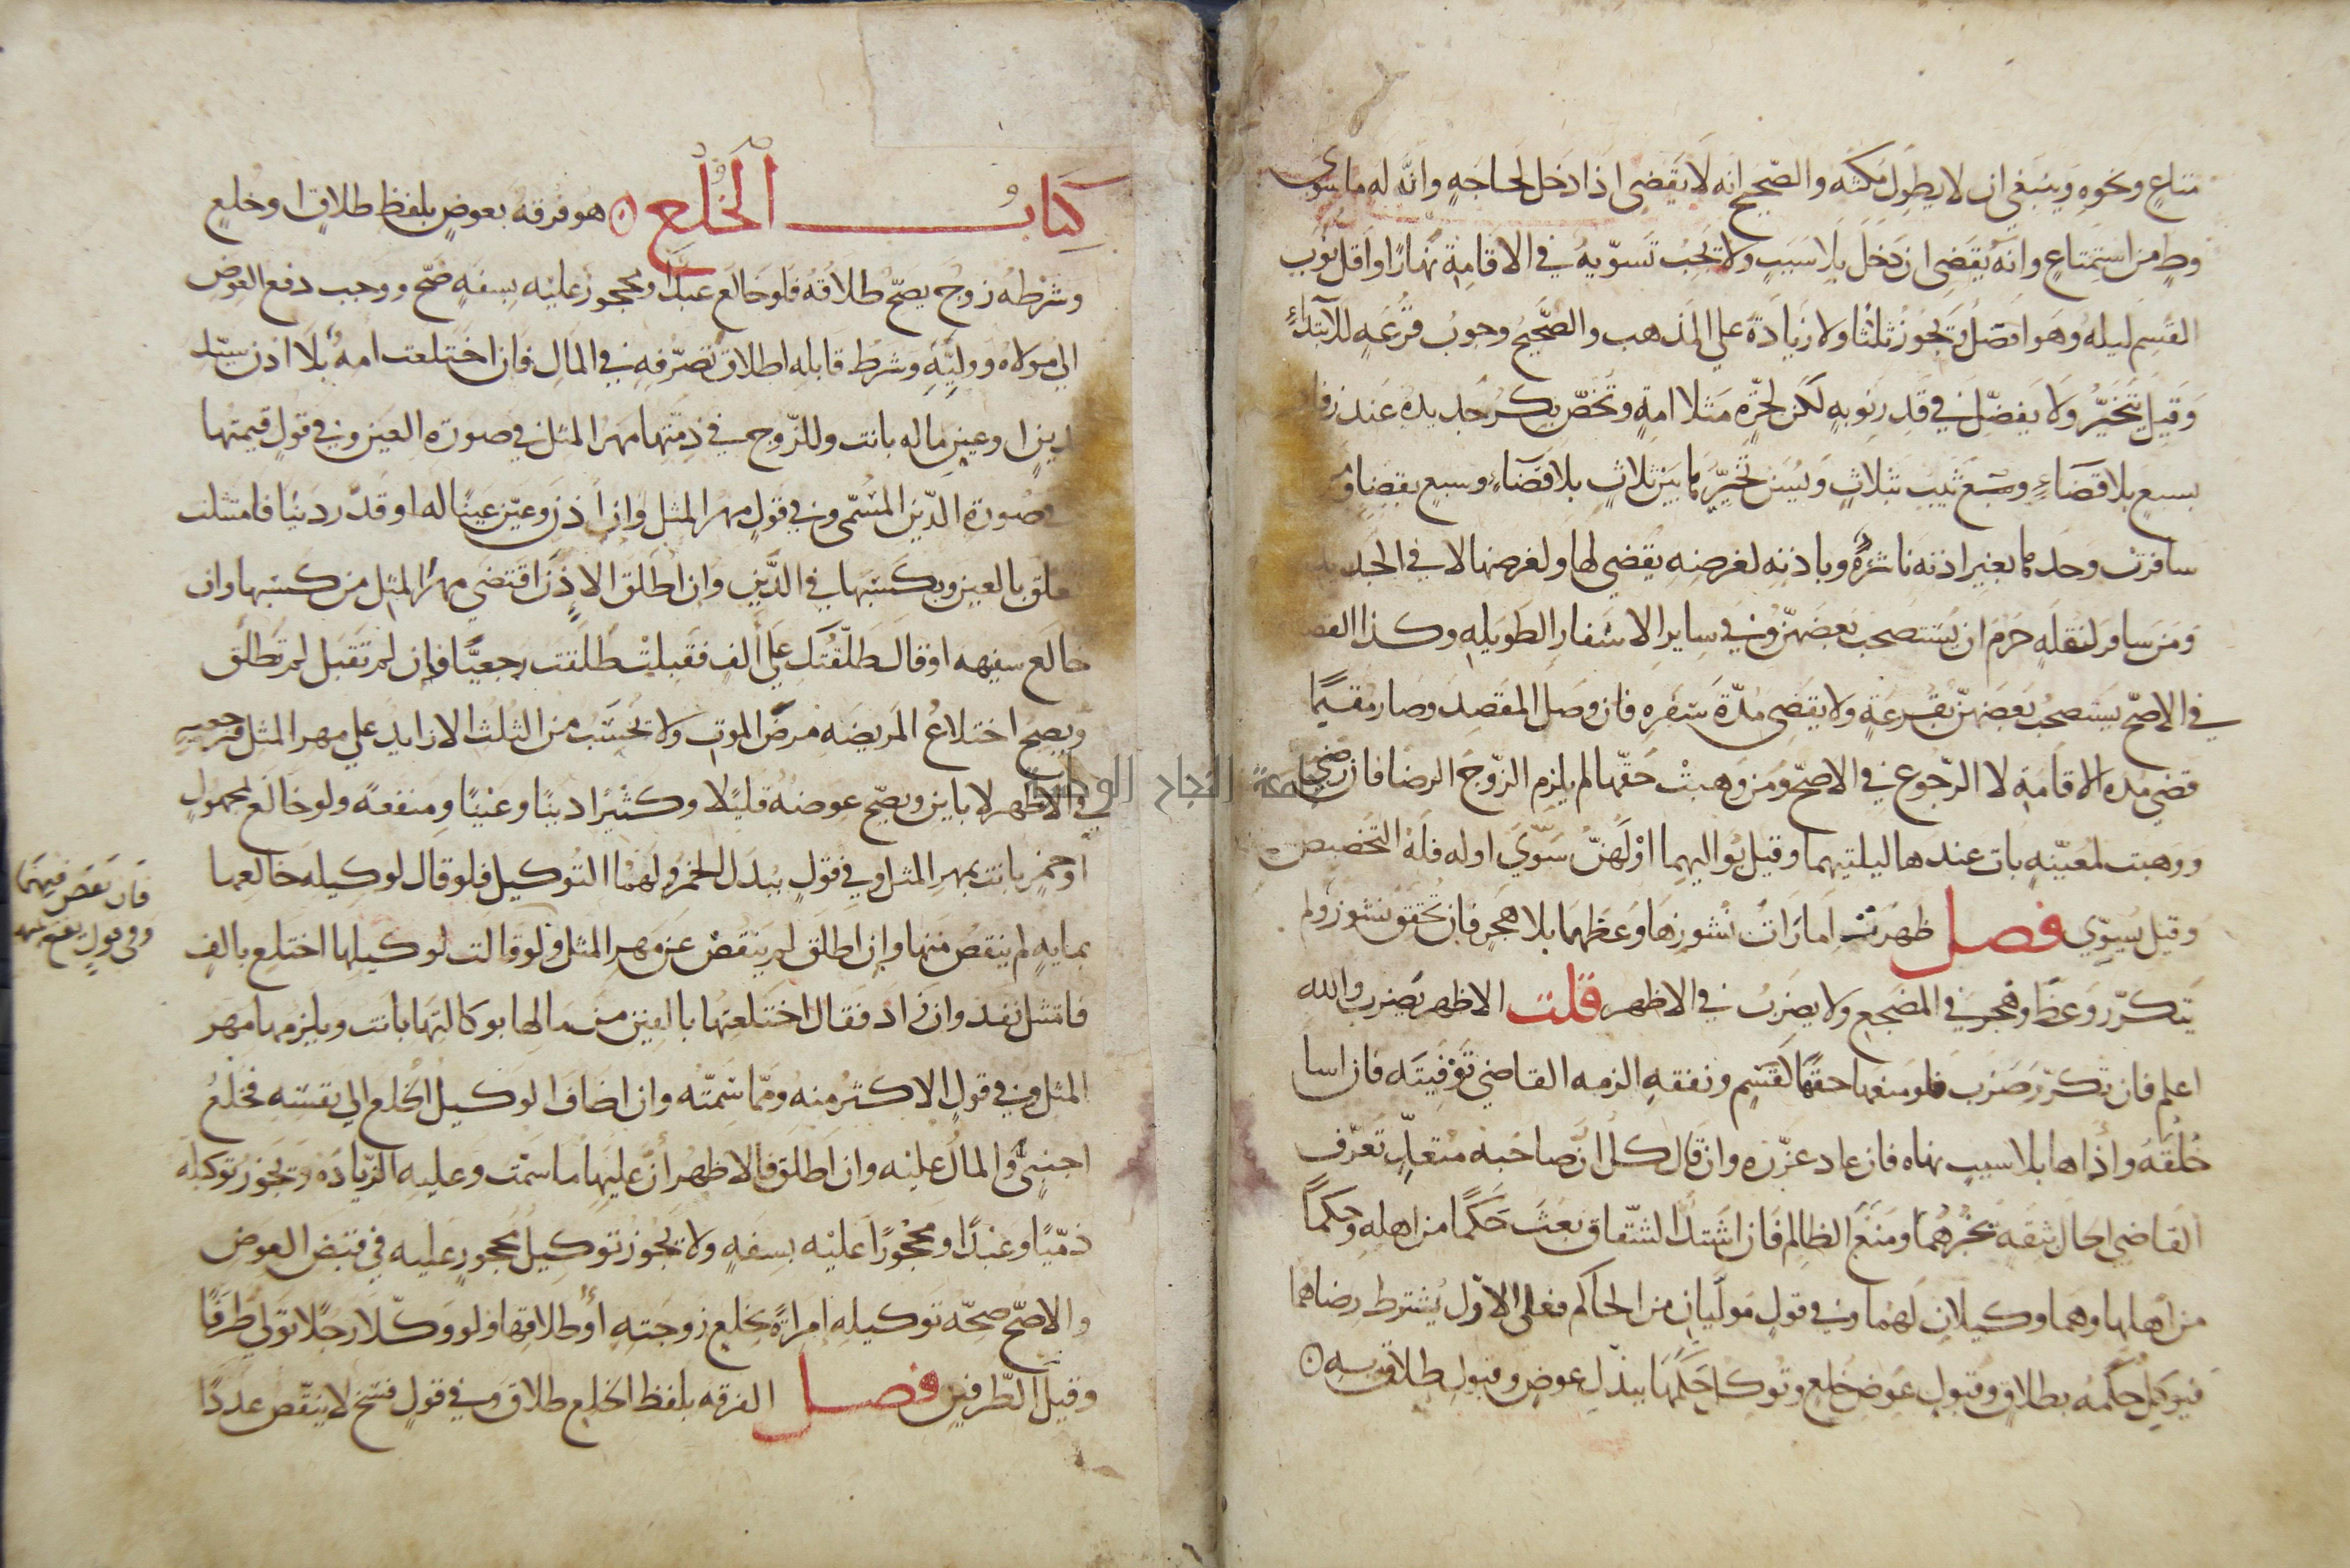 متاع ونحوه وينبغي ان لا يطول مكثه والصحيح انه لا يقضي اذا دخل لحاجه وانه له ما سوى
وطء من استمتاع وانه يقضي ان دخل بلا سبب ولا تجب تسويه في الاقامة نهارا واقل نوب
القسم ليله وهو افضل وتجوز ثلثا ولا زيادة علي المذهب والصحيح وجوب قرعه للابتداء
وقيل يتخير ولا يفضل في قدر نوبه لكن لحره مثلا امة وتختص بكر جديدة عند زفاف
بسبع بلا قضاء وثيب بثلاث ويسن تخييرها بين ثلاث بلا قضاء وسبع بقضا ومن
سافرت وحدها بغير اذنه ناشزة وباذنه لغرضه يقضي لها ولغرضها لا في الجديد
ومن سافر لنقله حرم ان يستصحب بعضهن وفي ساير الاسفار الطويله وكذا القصيره
في الاصح يستصحب بعضهن بقرعة ولا يقضي مدة سفره فان وصل المقصد وصار مقيما
قضي مدة الاقامة لا الرجوع في الاصح ومن وهبت حقها لم يلزم الزوج الرضا فان رضي
ووهبت لمعينه بات عندها ليلتيهما وقيل يواليهما او لهن سوي او له فله التخصيص
وقيل يسوي فصل ظهرت امارات نشوزها وعظها بلا هجر فان تحقق نشوز ولم
يتكرر وعظ وهجر في المضجع ولا يضرب في الاظهر قلت الاظهر يضرب والله
اعلم فان تكرر ضرب فلو منعها حقها لقسم ونفقه الزمه القاضي توفيته فان اسا
خلقه واذاها بلا سبب نهاه فان عاد عزره وان قال كل ان صاحبه متعد تعرف
القاضي الحال بثقة يخبرهما ومنع الظالم فان اشتد الشقاق بعث حكما من اهله وحكما
من اهلها وهما وكيلان لهما وفي قول موليان من الحاكم فعلى الاول يشترط رضاهما
فيوكل حكمه بطلاق وقبول عوض خلع وتوكل حكمها ببذل عوض وقبول طلاق به
كتاب الخلع هو فرقه بعوض بلفظ طلاق او خلع
وشرطه زوج يصح طلاقه فلو خالع عبد او محجور عليه بسفه صح ووجب دفع العوض
الي مولاه ووليه وشرط قابله اطلاق تصرفه في المال فان اختلعت امة بلا اذن سيد
بدين او عين ماله بانت وللزوج في ذمتها مهر المثل في صورة العين وفي قول قيمتها
في صورة الدين المسمى وفي قول مهر المثل وان اذن وعين عينا له او قدر دينا فامتثلت
تعلق بالعين وبكسبها في الدين وان اطلق الاذن اقتضى مهر المثل من كسبها وان
خالع سفيهه او قال طلقتك علي الف فقبلت طلقت رجعيا فان لم تقبل لم تطلق
ويصح اختلاع المريضه مرض الموت ولا تحسب من الثلث الا زايد علي مهر المثل ورجعيه
في الاظهر لا باين ويصح عوضه قليلا وكثيرا دينا وعينا ومنفعة ولو خالع بمجهول
او خمر بانت بمهر المثل وفي قول ببدل الخمر ولهما التوكيل فلو قال لوكيله خالعها
بمايه لم ينقص منها وان اطلق لم ينقص عن مهر المثل ولو قالت لوكيلها اختلع بالف
فان نقص فيهما
وفي قول يقع
فامتثل نفذ وان زاد فقال اختلعتها بالفين من مالها بوكالتها بانت ويلزمها مهر
المثل وفي قول الاكثر منه ومما سمته وان اضاف الوكيل الخلع الي نفسه فخلع
اجنبي والمال عليه وان اطلق فالاظهر ان عليها ما سمت وعليه الزيادة ويجوز توكيله
ذميا وعبدا ومحجورا عليه بسفه ولا يجوز توكيل محجور عليه في قبض العوض
والاصح صحه توكيله امراة بخلع زوجته او طلاقها ولو وكلا رجلا تولى طرفا
وقيل الطرفين فصل الفرقه بلفظ الخلع طلاق وفي قول فسخ لا ينقص عددا
جامعة النجاح الوطنية